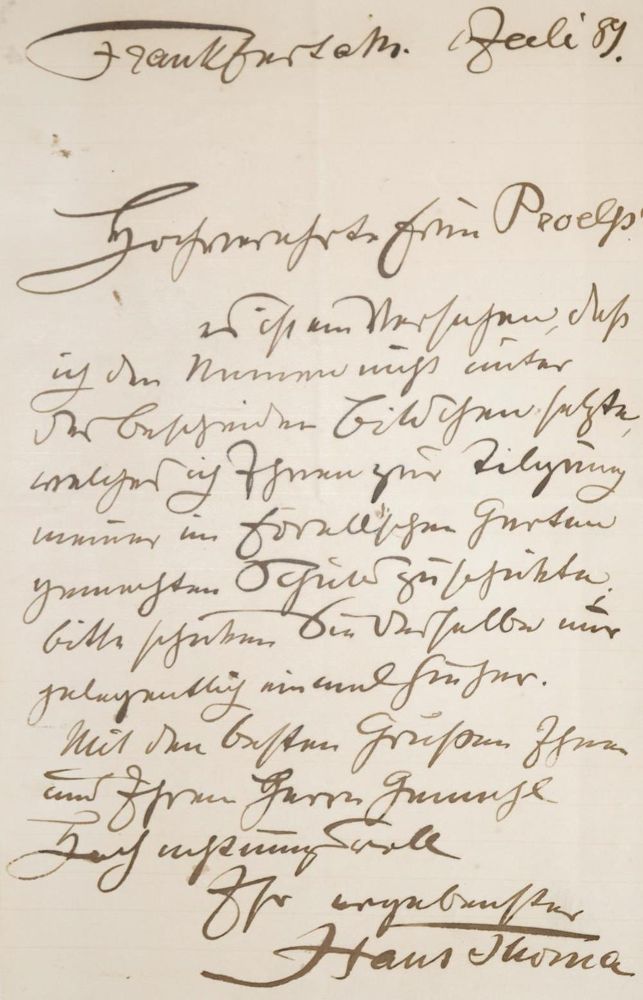 Frankfurt a/M. Juli 89.
Hochverehrte Frau Proelß
es ist ein Versehen, daß
ich den Namen nicht unter
das bescheidene Bildchen setzte,
welches ich Ihnen zur Tilgung
meiner im Garten
gemachten Schuld zuschickte,
bitte schicken Sie dasselbe mir
gelegentlich einmal hieher.
Mit den besten Grüßen Ihnen
und Ihrem Herrn Gemahl
Hochachtungsvoll
Ihr ergebenster
Hans Thoma